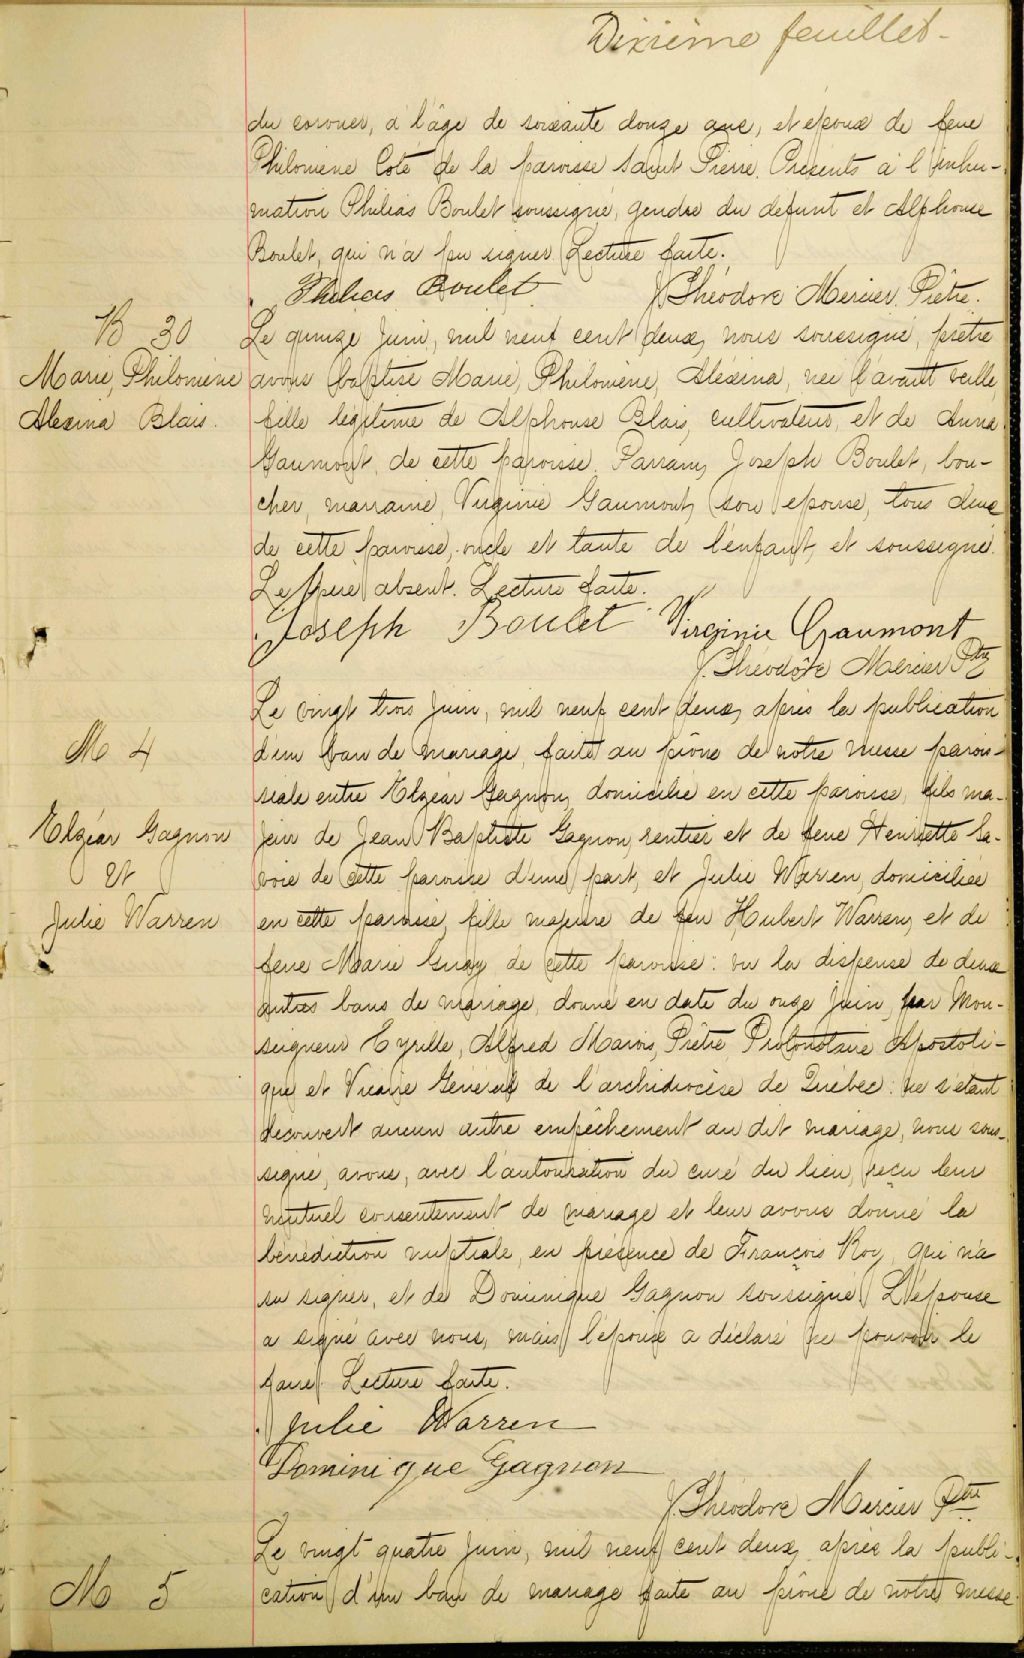 Dixième feuillet-
du coroner, à l'âge de soixante douze ans, et époux de feue
Philomène Coté de la paroisse Saint Pierre. Présents à l'inhu-
mation Philias Boulet soussigné, gendre du défunt et Alphonse
Boulet, qui n'a pu signer. Lecture faite.
Philias Boulet
J. Théodore Mercier, Prêtre.
B 30
Marie, Philomène
Alexina Blais.
Le quinze Juin, mil neuf cent deux, nous soussigné, prêtre
avons baptisé Marie, Philomène, Aléxina, née l'avant veille,
fille légitime de Alphonse Blais, cultivateur, et de Anna
Gaumont, de cette paroisse. Parrain, Joseph Boulet, bou-
cher, marraine, Virginie Gaumont, son épouse, tous deux
de cette paroisse, oncle et tante de l'enfant, et soussigné.
Le père absent. Lecture faite.
Joseph Boulet Virginie Gaumont
J. Théodore Mercier Ptre
M 4
Elzéar Gagnon
et
Julie Warren
Le vingt trois Juin, mil neuf cent deux, après la publication
d'un ban de mariage, faite au prône de notre messe parois-
siale entre Elzéar Gagnon, domicilié en cette paroisse, fils ma-
jeur de Jean Baptiste Gagnon, rentier et de feue Henriette Sa-
voie de cette paroisse d'une part, et Julie Warren, domiciliée
en cette paroisse, fille majeure de feu Hubert Warren, et de
feue Marie Guay de cette paroisse: vu la dispense de deux
autres bans de mariage, donné en date du onze Juin, par Mon-
seigneur Cyrille, Alfred Marois, Prêtre, Protonotaire Apostoli-
que et Vicaire Général de l'archidiocèse de Québec: ne s'étant
découvert aucun autre empêchement au dit mariage, nous sous-
signé, avons, avec l'autorisation du curé du lieu, reçu leur
mutuel consentement de mariage et leur avons donné la
bénédiction nuptiale, en présence de François Roy, qui n'a
su signer, et de Dominique Gagnon soussigné. L'épouse
a signé avec nous, mais l'époux a déclaré ne pouvoir le
faire. Lecture faite.
Julie Warren
Dominique Gagnon
J. Théodore Mercier Ptre
M 5
Le vingt quatre Juin, mil neuf cent deux, après la publi-
cation d'un ban de mariage faite au prône de notre messe